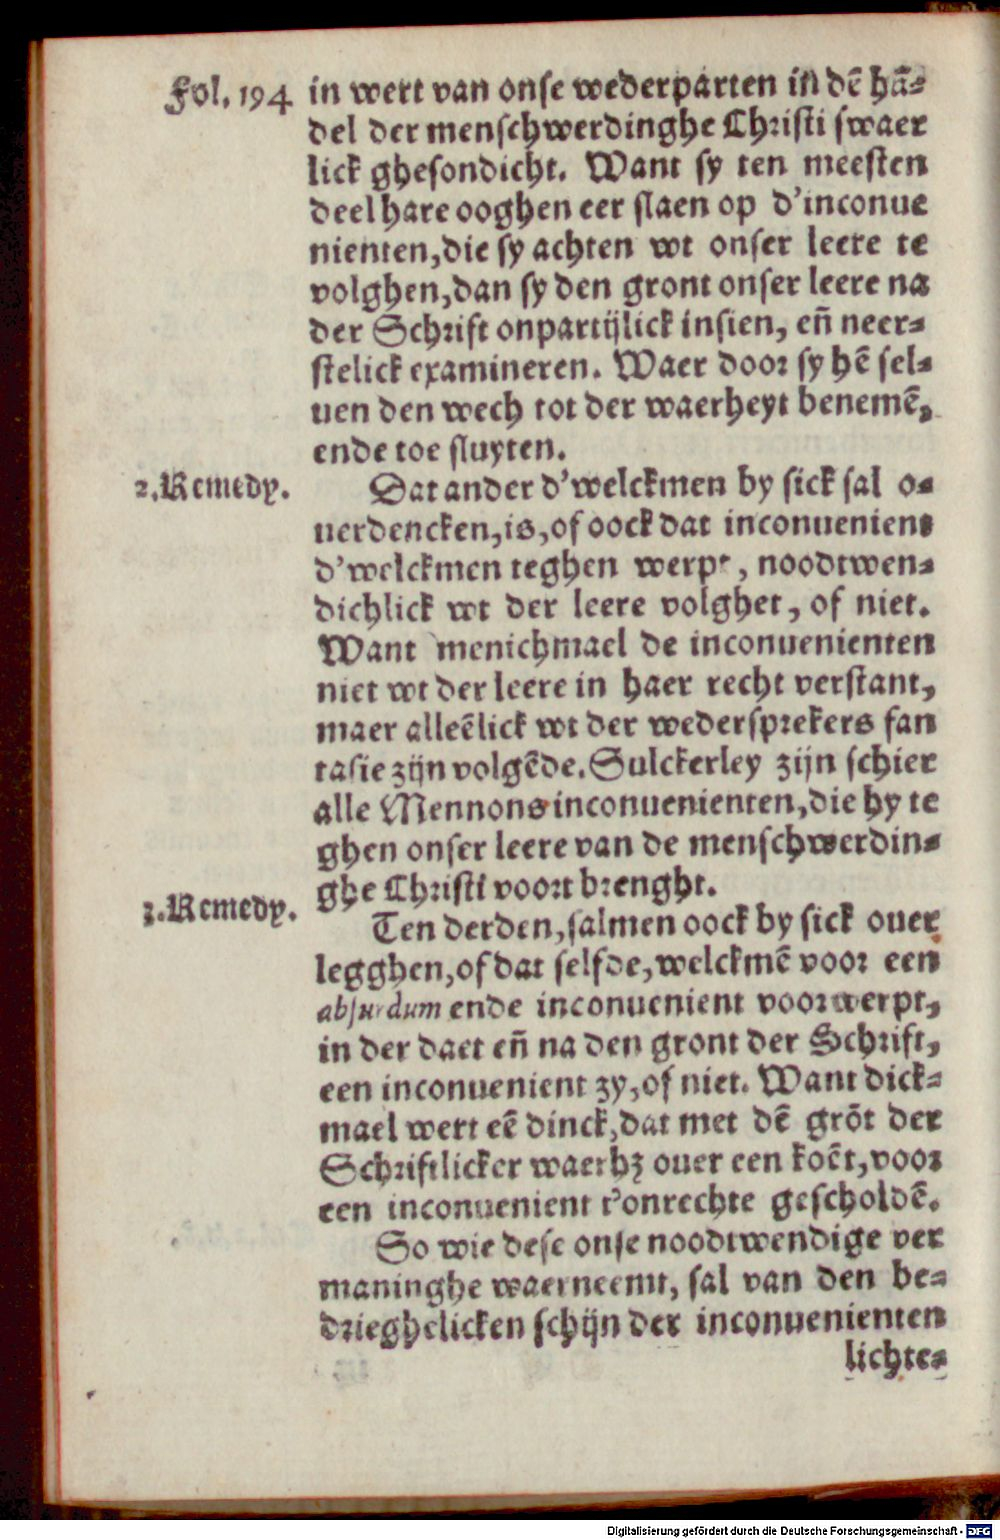 Fol. 194
in wert van onse wederparten in dē hā-
del der menschwerdinghe Christi swaer
lick ghesondicht. Want sy ten meesten
deel hare ooghen eer slaen op d'inconue
nienten, die sy achten wt onser leere te
volghen, dan sy den gront onser leere na
der Schrift onpartijlick insien, eñ neer-
stelick examineren. Waer door sy hē sel-
uen den wech tot der waerheyt benemē,
ende toe sluyten.
2. Remedy.
Dat ander d'welckmen by sick sal o-
uerdencken, is, of oock dat inconuenient
d'welckmen teghen werpt, noodtwen-
dichlick wt der leere volghet, of niet.
Want menichmael de inconuenienten
niet wt der leere in haer recht verstant,
maer alleēlick wt der wedersprekers fan
tasie zijn volgēde. Sulckerley zijn schier
alle Mennons inconuenienten, die hy te
ghen onser leere van de menschwerdin-
ghe Christi voort brenght.
3. Remedy.
Ten derden, salmen oock by sick ouer
legghen, of dat selfde, welckmē voor een
absurdum ende inconuenient voorwerpt,
in der daet eñ na den gront der Schrift,
een inconuenient zy, of niet. Want dick-
mael wert eē dinck, dat met dē grōt der
Schriftlicker waerhꝫ ouer een koēt, voor
een inconuenient t'onrechte gescholdē.
So wie dese onse noodtwendige ver
maninghe waerneemt, sal van den be-
drieghelicken schijn der inconuenienten
lichte-
Digitalisierung gefördert durch die Deutsche Forschungsgemeinschaft - DFG